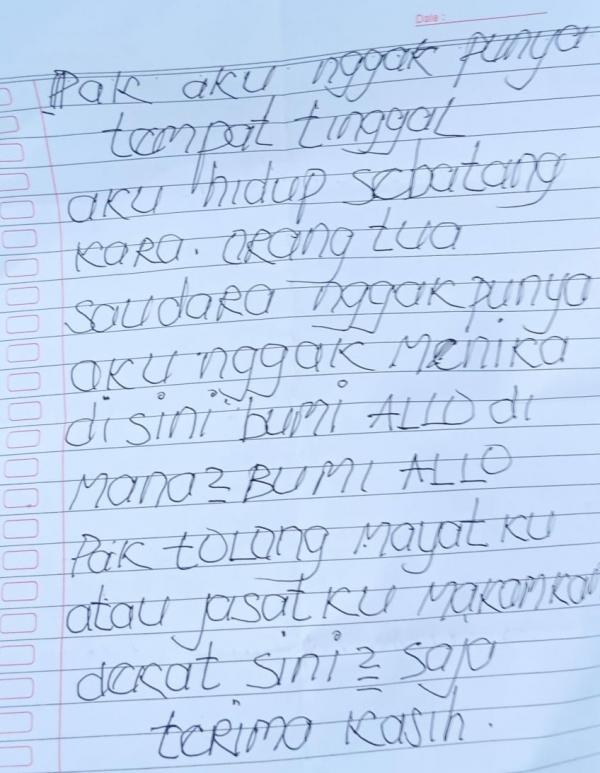 Date :
Pak aku nggak punya
tempat tinggal
aku hidup sebatang
kara. orang tua
saudara nggak punya
aku nggak menika
di sini bumi ALLO di
mana2 BUMI ALLO
Pak tolong mayat ku
atau jasat ku makamkan
dekat sini2 saja
terima kasih.